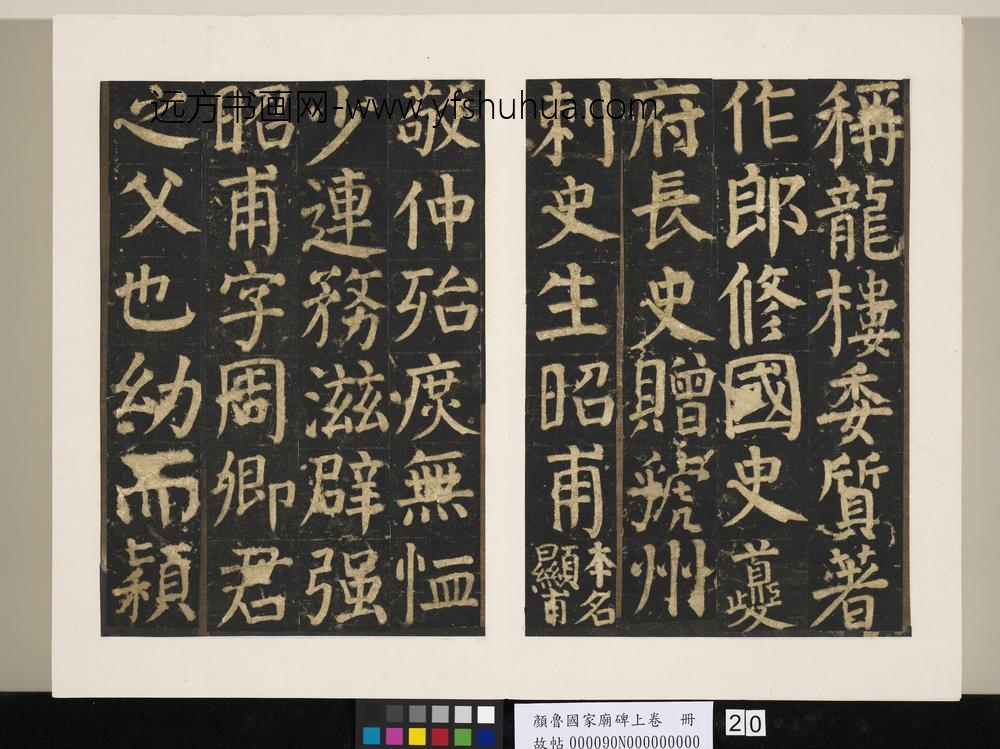 稱龍樓委質著
作郎修國史
府長史贈虢州
刺史生昭甫本名
顯甫
敬仲殆庶無恤
少連務滋辟强
昭甫字周卿君
之父也幼而穎
远方书画网-www.yfshuhua.com
顏魯國家廟碑上卷 冊
故帖 000090N000000000
20